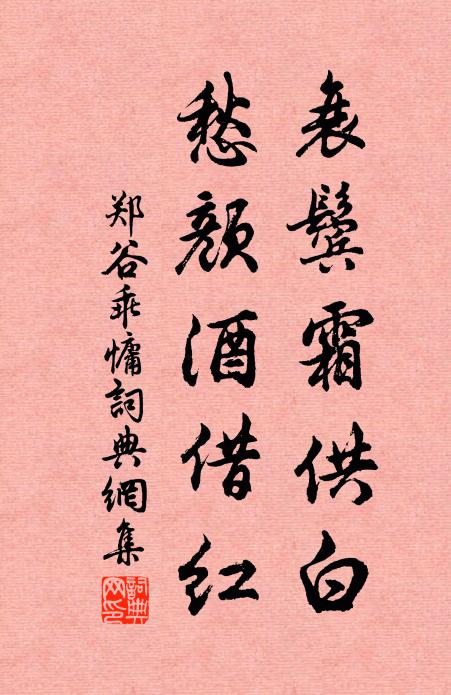 衰鬓霜供白
愁颜酒借红
郑谷乖慵詞典網集
詞典网印